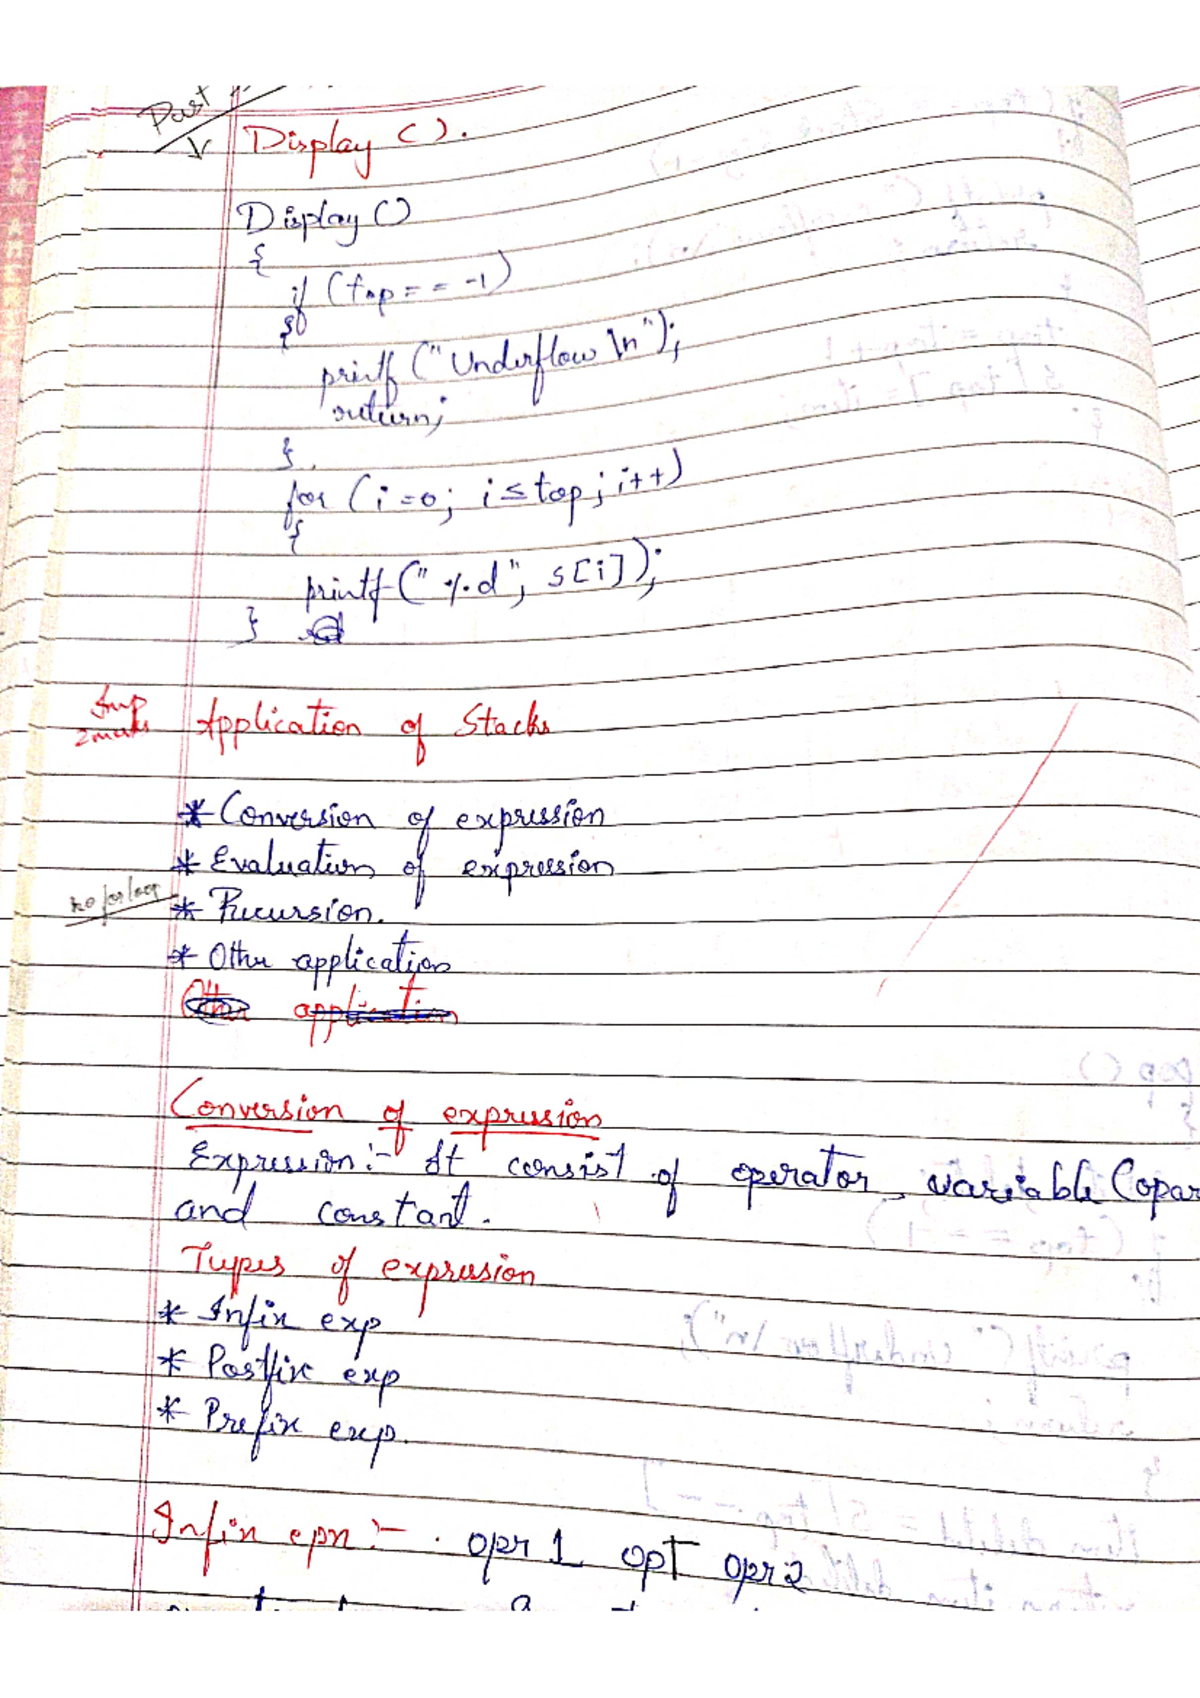 Past
Display ().
Display ()
{
if (top == -1)
{
printf ("Underflow \n");
return;
}
for (i=0; i≤top; i++)
{
printf ("%d", s[i]);
}
Imp
2marks
Application of Stacks
* Conversion of expression
* Evaluation of expression
no for loop
* Recursion.
* Other application
Other application
Conversion of expression
Expression :- It consist of operator, variable (opar
and constant.
Types of expression
* Infix exp
* Postfix exp
* Prefix exp.
Infix epn :- . opr 1 opt opr 2